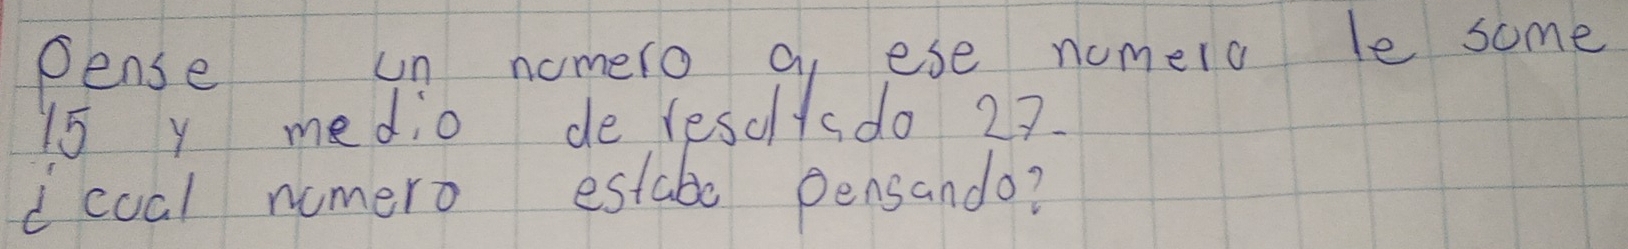 Pense un numero a ese numero le sume
15 y medio de resultado 27.
¿cual numero estaba pensando?